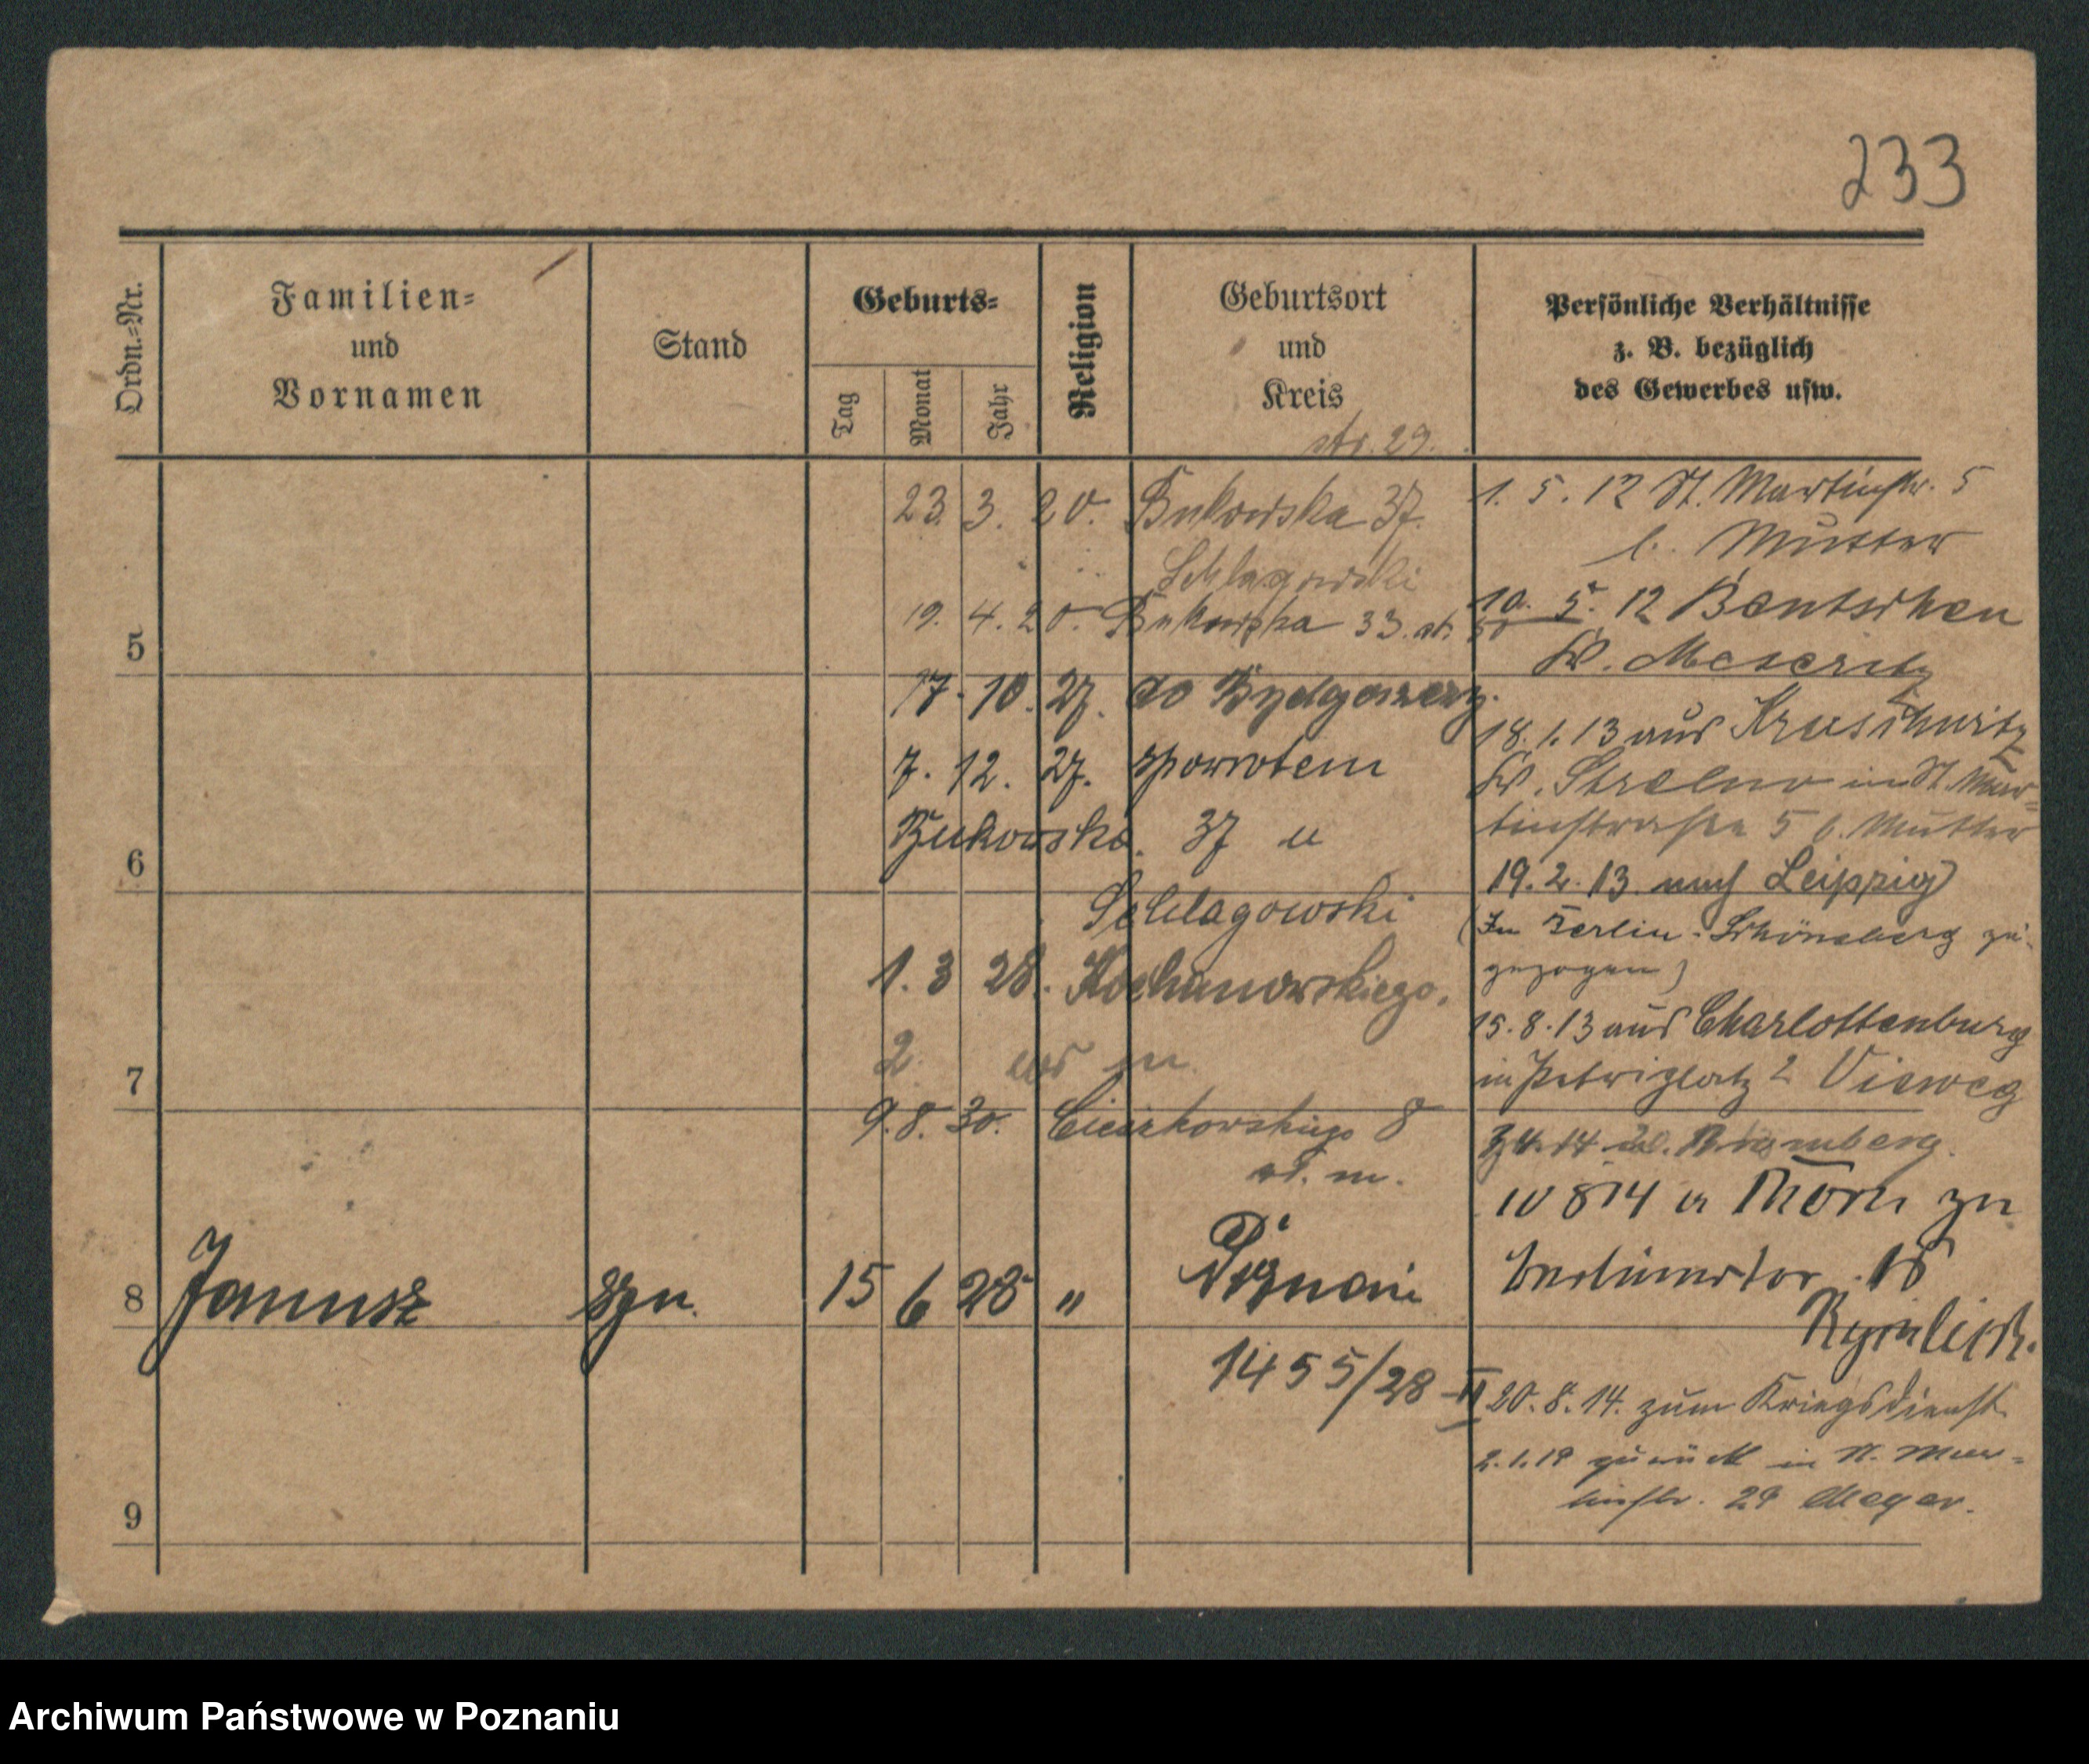 233
Ordn.=Nr.
Familien=
und
Vornamen
Stand
Geburts=
Tag
Monat
Jahr
Religion
Geburtsort
und
Kreis
Persönliche Verhältnisse
z. B. bezüglich
des Gewerbes usw.
str. 29.
23. 3. 20. Bukowska 37.
Schlagowski
19. 4. 20. Bukowska 33.
5
17. 10. 27. do Bydgoszczy.
7. 12. 27. zpowrotem
Bukowska. 37 u
6
Schlagowski
1. 3 28. Kochanowskiego.
2.
7
9. 8. 30. Cieszkowskiego 8
8 Janusz syn. 15 6 28 " Poznań
1455/28-II
9
1. 5. 12 St. Martinstr. 5
b. Mutter
10. 5. 12 Bentschen
Kr. Meseritz
18. 1. 13 aus Kruschwitz
Kr. Strelno in St. Mar=
tinstrasse 5 b. Mutter
19. 2. 13. nach Leipzig
(In Berlin-Schöneberg zu=
gezogen)
15. 8. 13 aus Charlottenburg
in Petriplatz 2 Vieweg
4. 14 Bromberg.
10 8 14 a Thorn zu
Berlinertor. 15
20. 8. 14. zum Kriegsdienst
2. 1. 19 zurück in St. Mar=
tinstr. 29 Meyer.
Archiwum Państwowe w Poznaniu